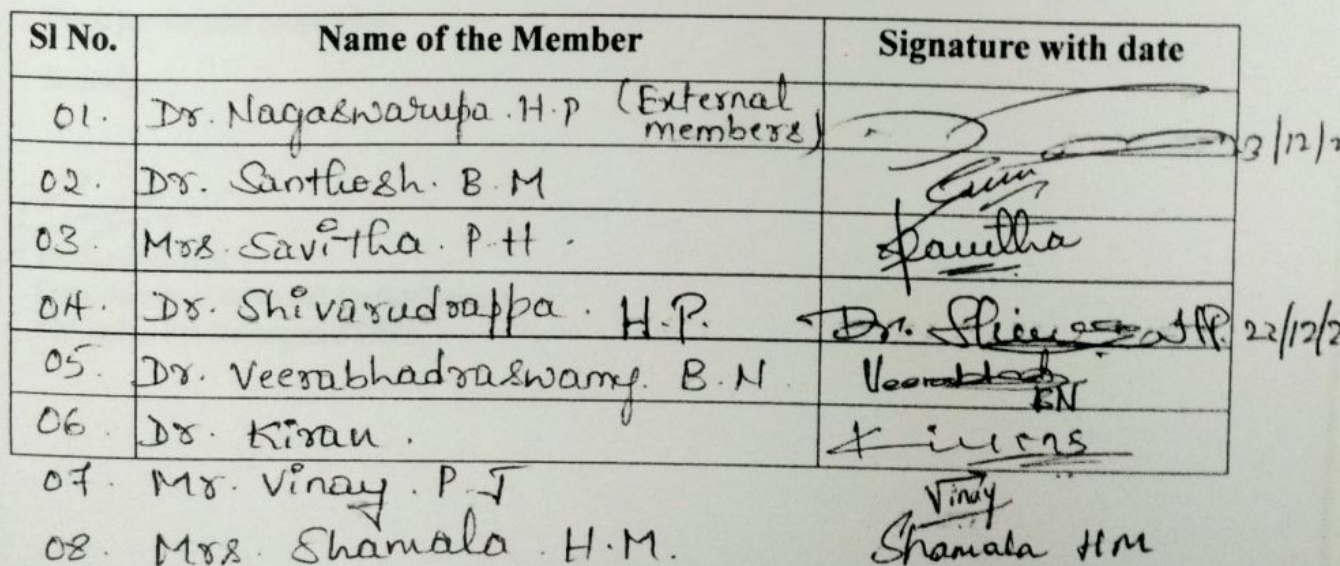 Sl No. Name of the Member Signature with date
01. Dr. Nagaswarupa. H.P (External members) 3/12/2
02. Dr. Santhosh. B.M
03. Mrs. Savitha. P.H. Savitha
04. Dr. Shivarudrappa. H.P. Dr. H.P. 22/12/2
05. Dr. Veerabhadraswamy. B.N Veerabhadra BN
06. Dr. Kiran.
07. Mr. Vinay. P.J Vinay
08. Mrs. Shamala H.M. Shamala HM